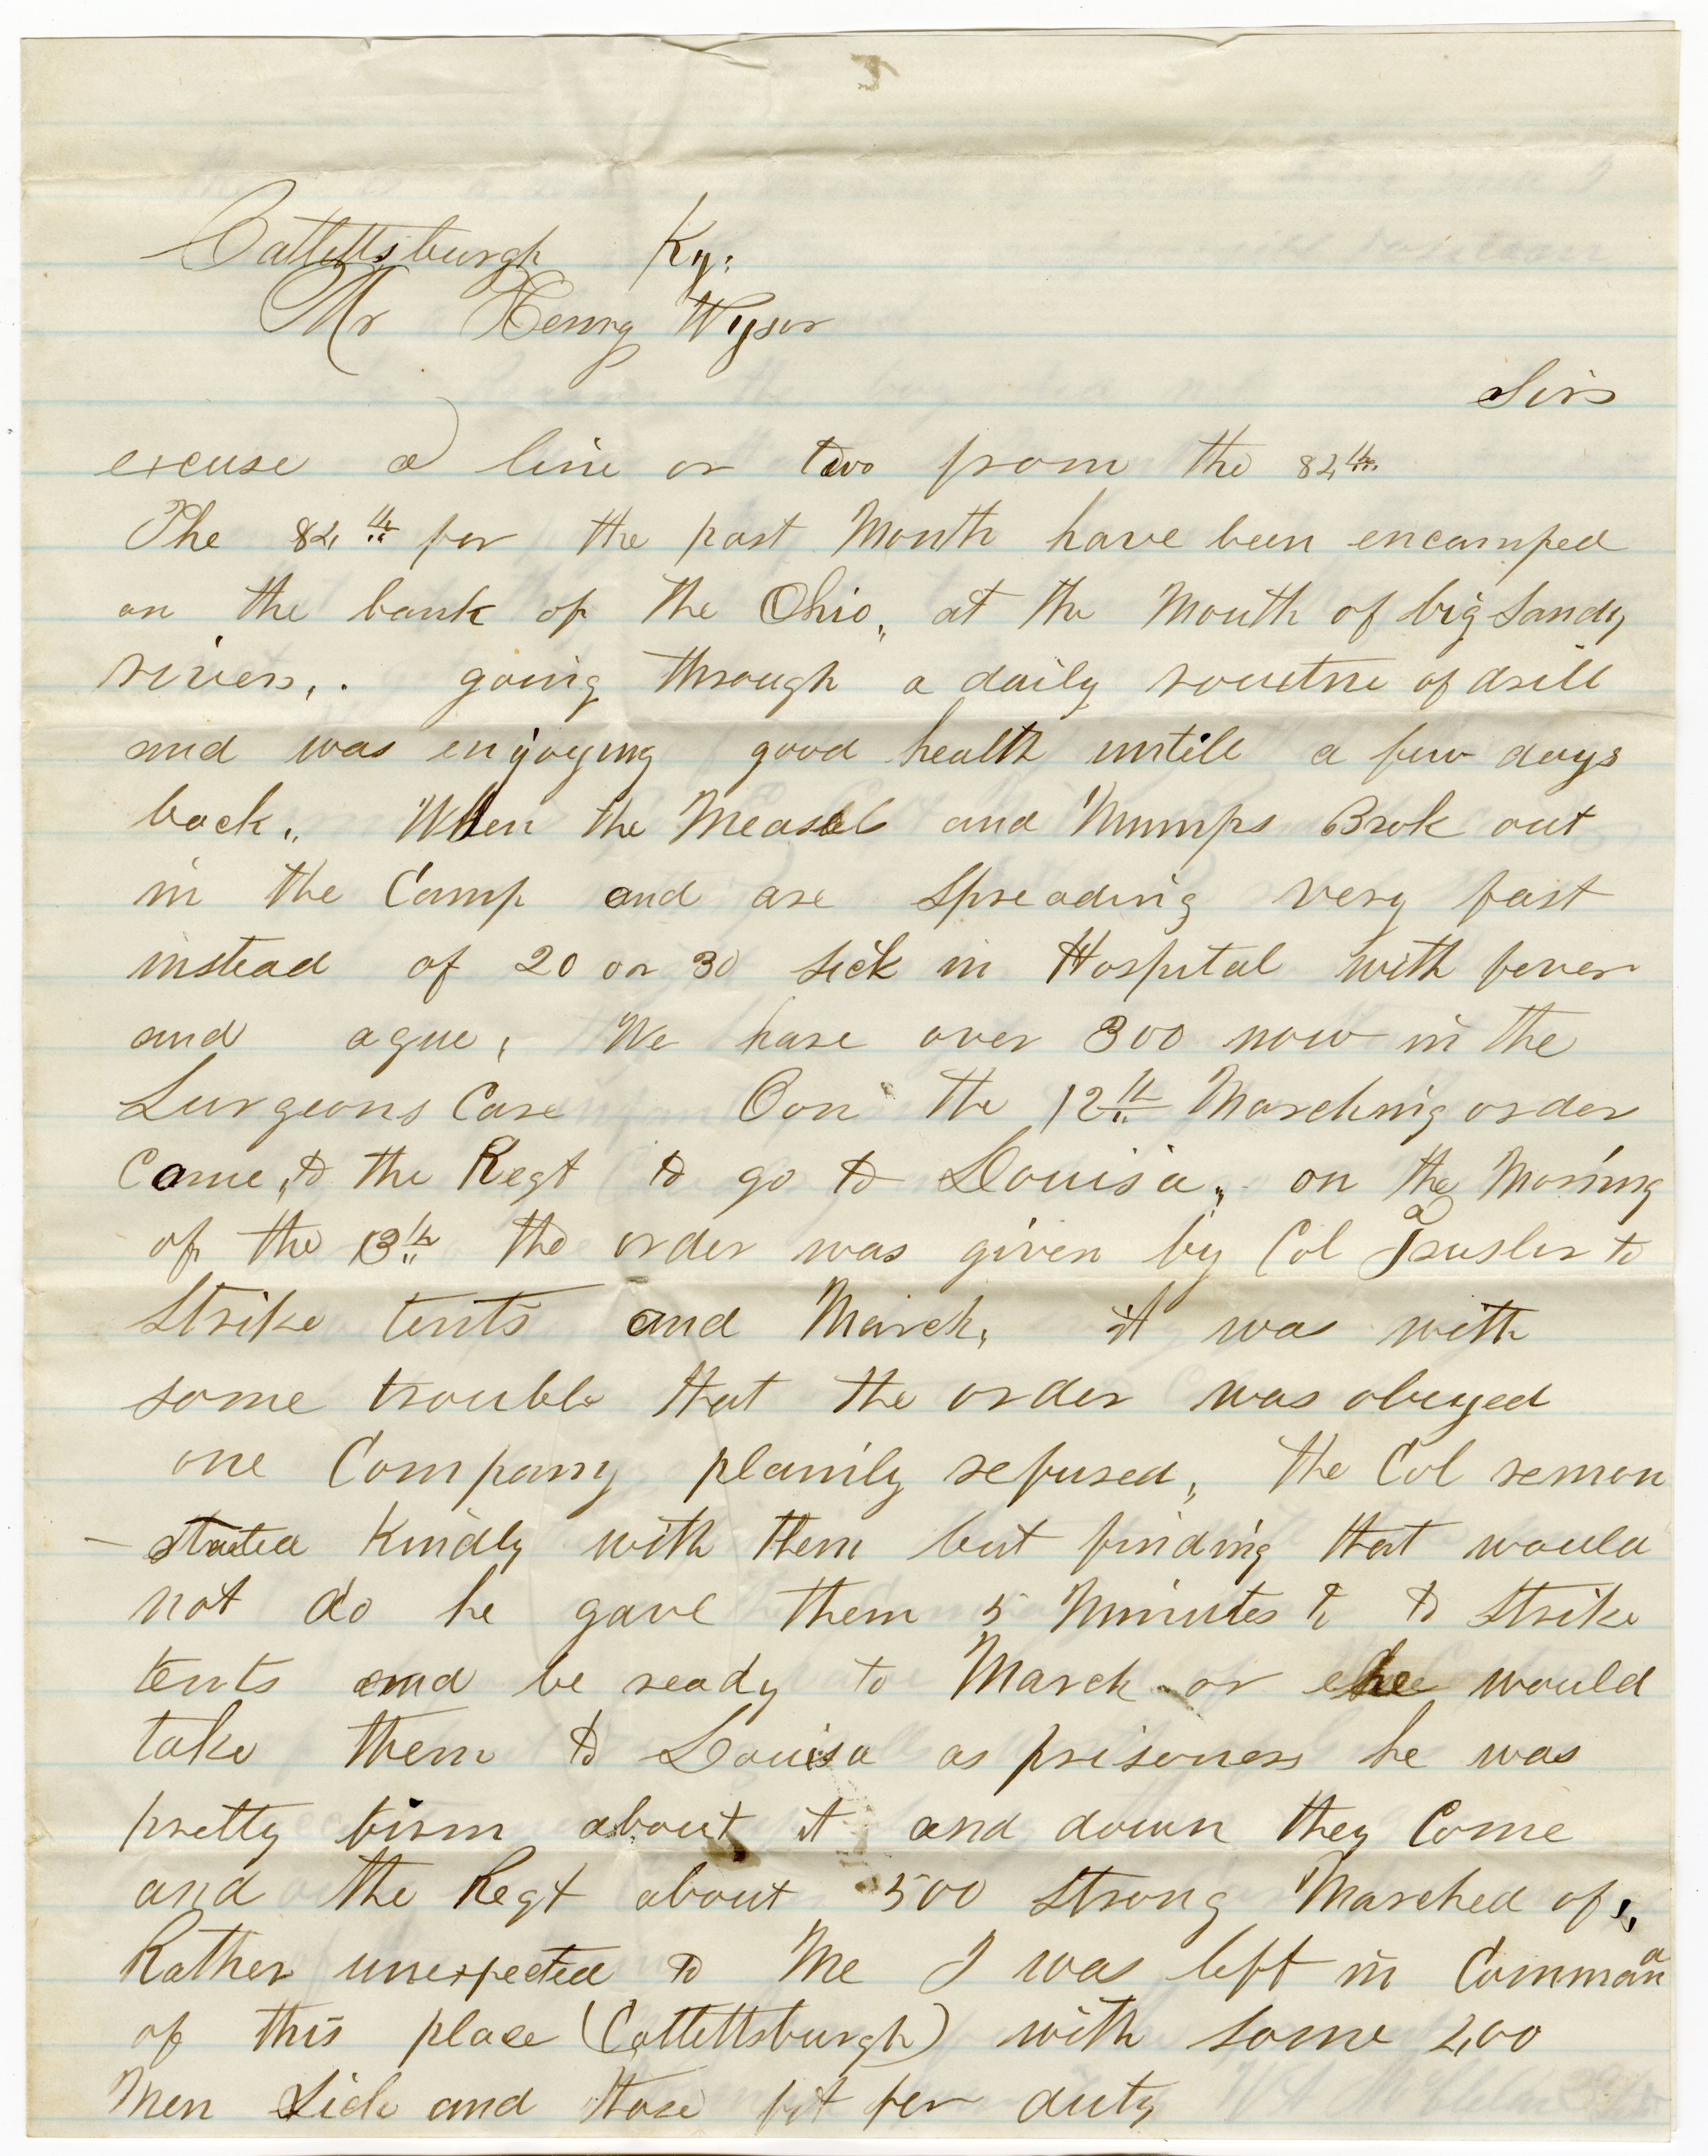 Catlettsburgh Ky:
Mr Henry Wysor
Sirs
excuse a line or two from the 84th
The 84th for the past Month have been encamped
on the bank of the Ohio, at the Mouth of big Sandy
river,. going through a daily rouetne of drill
and was enjoying good health untill a few days
back,. When the Measels and Mumps Brok out
in the Camp and are Spreading very fast
instead of 20 or 30 sick in Hospital with fever
and ague, We have over 300 now in the
Surgeons Care Oon the 12th Marching order
Came, to the Regt to go to Louisa, on the Morning
of the 13th the order was given by Col Trusler to
Strike tents and March, it was with
some trouble that the order was obeyed
one Company plainly refused, the Col remon
- strated Kindly with them but finding that would
not do he gave them 5 Minutes to to Strike
tents and be ready to March or he would
take them to Louisa as prisoners he was
pretty firm about it and down they Come
and the Regt about 500 Strong Marched of,
Rather unexpected to Me I was left in Comman
of this place (Catlettsburgh) with some 200
Men Sick and those fit for duty